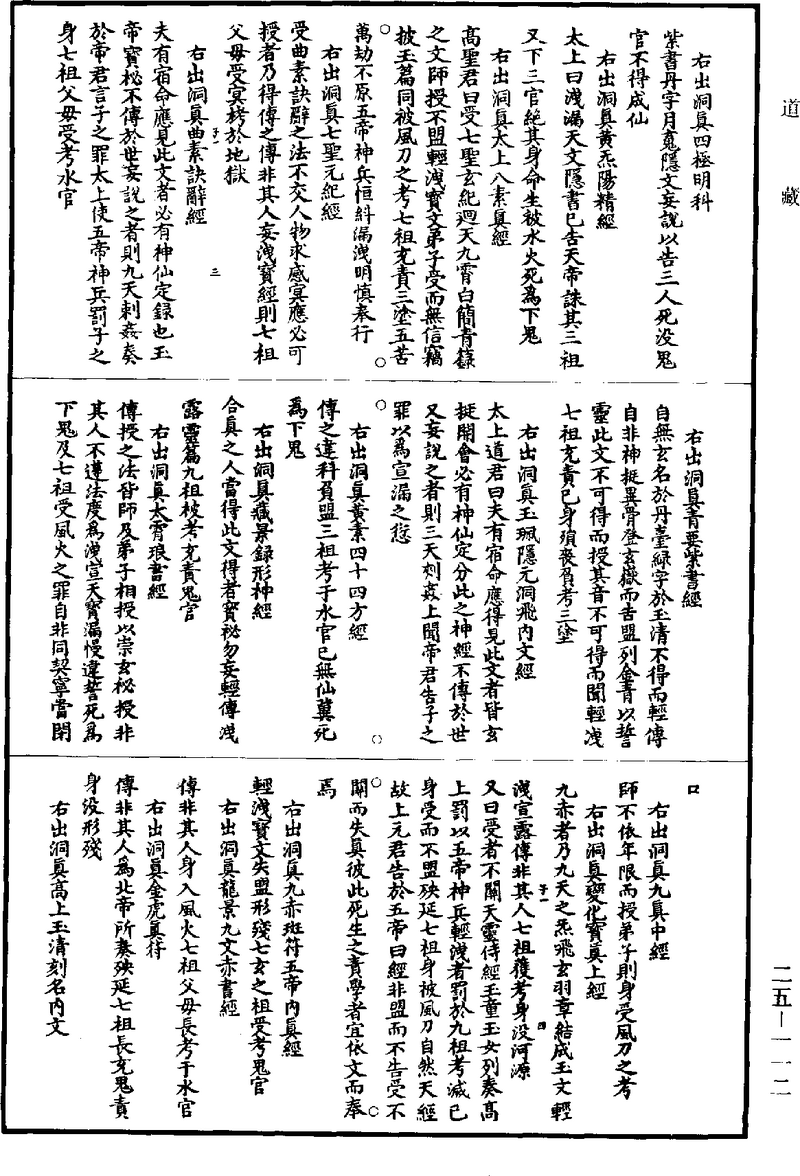 道藏
右出洞真四極明科
紫書丹字月魂隱文妄說以告三人死没鬼
官不得成仙
右出洞真黃炁陽精經
太上曰洩漏天文隱書已告天帝誅其三祖
又下三官絕其身命生被水火死爲下鬼
右出洞真太上八素真經
高聖君曰受七聖玄紀迴天九霄白簡青籙
之文師授不盟輕洩寶文弟子受而無信竊
披玉篇同被風刀之考七祖充責三塗五苦
萬劫不原五帝神兵恒糾漏洩明慎奉行
右出洞真七聖元紀經
受曲素訣辭之法不交人物求感冥應必可
授者乃得傳之傳非其人妄洩寶經則七祖
父母受冥栲於地獄
右出洞真曲素訣辭經
夫有宿命應見此文者必有神仙定録也玉
帝寶祕不傳於世妄說之者則九天刺姦奏
於帝君言子之罪太上使五帝神兵罰子之
身七祖父母受考水官
三
右出洞真青要紫書經
自無玄名於丹臺緑字於玉清不得而輕傳
自非神挺異骨登玄嶽而告盟列金青以誓
靈此文不可得而授其音不可得而聞輕洩
七祖充責已身殞喪負考三塗
右出洞真玉珮隱元洞飛内文經
太上道君曰夫有宿命應得見此文者皆玄
挺開會必有神仙定分此之神經不傳於世
又妄說之者則三天刻姦上聞帝君告子之
罪以爲宣漏之愆
右出洞真黃素四十四方經
傳之違科負盟三祖考于水官已無仙冀死
爲下鬼
右出洞真藏景録形神經
合真之人當得此文得者寶祕勿妄輕傳洩
露靈篇九祖被考充責鬼官
右出洞真太霄琅書經
傳授之法皆師及弟子相授以崇玄祕授非
其人不遵法度爲洩宣天寶漏慢違誓死爲
下鬼及七祖受風火之罪自非同契寧當閉
口
右出洞真九真中經
師不依年限而授弟子則身受風刀之考
右出洞真變化寶真上經
九赤者乃九天之炁飛玄羽章結成玉文輕
洩宣露傳非其人七祖獲考身没河源
又曰受者不關天靈侍經玉童玉女列奏高
上罰以五帝神兵輕洩者罰於九祖考滅已
身受而不盟殃延七祖身被風刀自然天經
故上元君告於五帝曰經非盟而不告受不
關而失真彼此死生之責學者宜依文而奉
焉
右出洞真九赤班符五帝内真經
輕洩寶文失盟形殘七玄之祖受考鬼官
右出洞真龍景九文赤書經
傳非其人身入風火七祖父母長考于水官
右出洞真金虎真符
傳非其人爲北帝所奏殃延七祖長充鬼責
身没形殘
右出洞真高上玉清刻名内文
四
二五—一一二